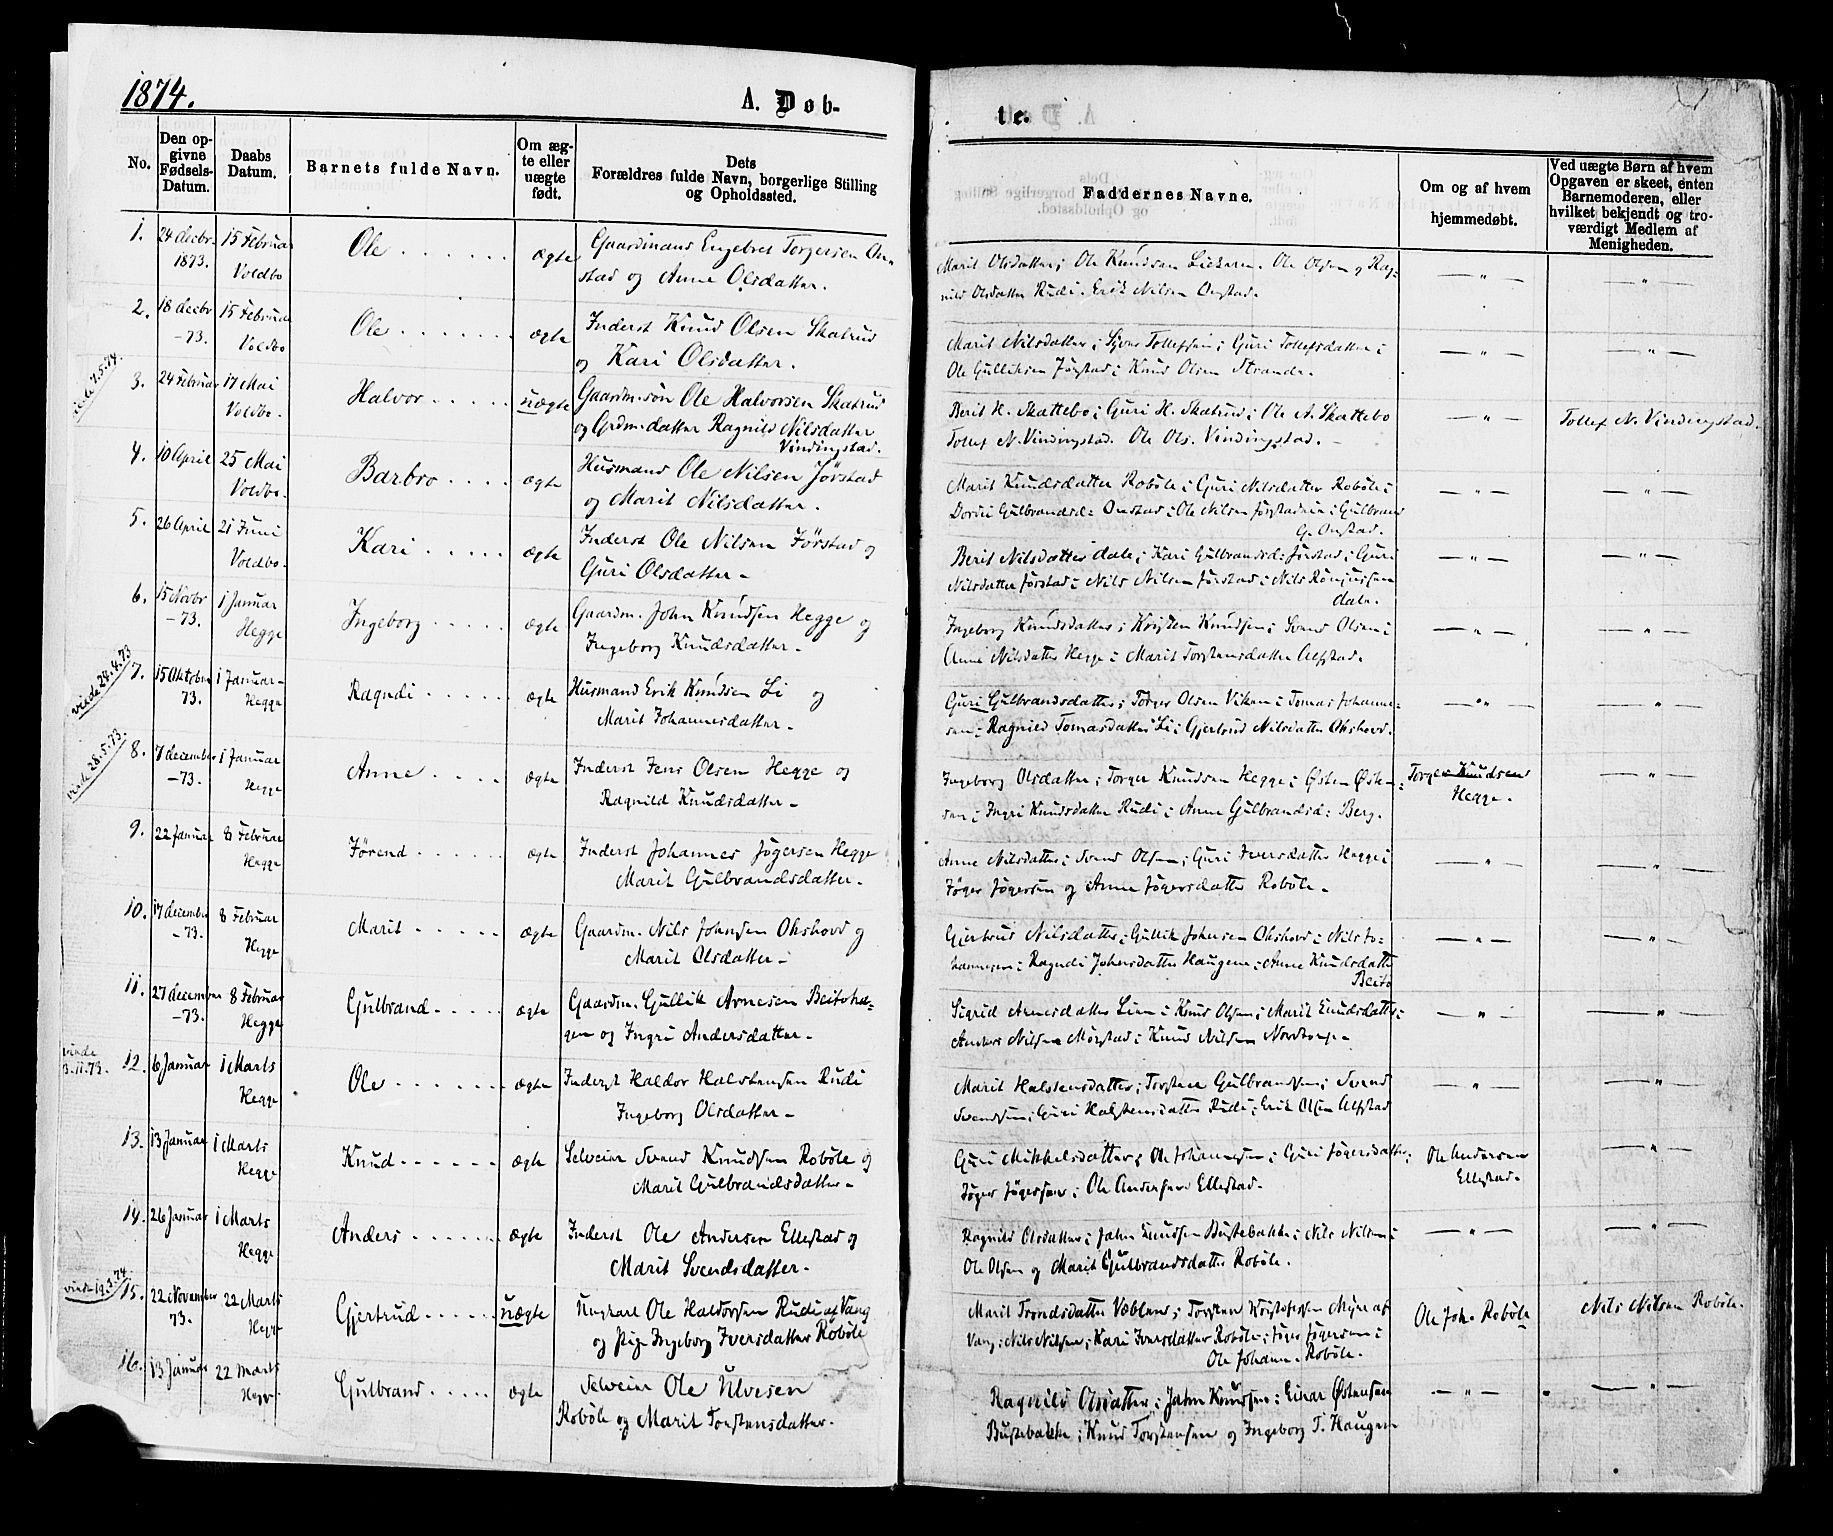 1874.
A. Døb-
te.
No.
Den op-
givne
Fødsels-
Datum.
Daabs
Datum.
Barnets fulde Navn.
Om æg-
te eller
uægte
født.
Dets
Forældres fulde Navn, borgerlige Stilling
og Opholdssted.
Faddernes Navne.
Om og af hvem
hjemmedøbt.
Ved uægte Børn af hvem
Opgaven er skeet, enten
Barnemoderen, eller
hvilket bekjendt og tro-
værdigt Medlem af
Menigheden.
1. 24 decbr. 15 Februar Ole ægte Gaardmand Engebret Torgersen On-
1873. Voldbo stad og Anne Olsdatter.
Marit Olsdatter; Ole Knudsen . Ole Olsen og Rag-
nild Olsdatter Rudi. Erik Nilsen Onstad.
2. 18 decbr 15 Februar Ole ægte Inderst Knud Olsen Skatrud
-73. Voldbo og Kari Olsdatter.
Marit Nilsdatter; Tollefsen; Guri Tollefsdatter;
Ole Gulliksen Jørstad; Knud Olsen Strande.
vide 7.5.74
3. 24 Februar 17 Mai Halvor uægte Gaardm.søn Ole Halvorsen Skatrud
Voldbo. og Grdm.datter Ragnild Nilsdatter
Vindingstad.
Berit K. Skattebo; Guri H. Skatrud; Ole A. Skattebo
Tollef N. Vindingstad. Ole Ols. Vindingstad. -
Tollef N. Vindingstad.
4. 10 April 25 Mai Barbro ægte Husmand Ole Nilsen Jørstad
Voldbo. og Marit Nilsdatter.
Marit Knudsdatter Robøle; Guri Nilsdatter Robøle;
Dordi Gulbrandsd: Onstad; Ole Nilsen ; Gulbrand
G. Onstad.
5. 26 April 21 Juni Kari ægte Inderst Ole Nilsen Jørstad og
Voldbo. Guri Olsdatter -
Berit Nilsdatter dale; Kari Gulbrandsd: Jørstad; Guri
Nilsdatter Jørstad; Nils Nilsen Jørstad; Nils
dale.
6. 15 Novbr 1 Januar Ingeborg ægte Gaardm. John Knudsen Hegge og
-73. Hegge Ingeborg Knudsdatter.
Ingeborg Knudsdatter; Knudsen; Svend Olsen;
Anne Nilsdatter Hegge; Marit Torstensdatter Alfstad.
vide 24.4.73
7. 15 Oktober 1 Januar Ragndi ægte Husmand Erik Knudsen Li og
73. Hegge Marit Johannesdatter -
Guri Gulbrandsdatter; Torger Olsen Viken; Tomas Johanne-
sen; Ragnild Tomasdatter Li; Gjertrud Nilsdatter Okshovd.
vide 28.5.73.
8. 7 december 1 Januar Anne ægte Inderst Jens Olsen Hegge og
-73. Hegge Ragnild Knudsdatter -
Ingeborg Olsdatter; Torger Knudsen Hegge; Østen Østen-
sen; Ingri Knudsdatter Rudi; Anne Gulbrandsd: Berg.
Torger Knudsen
Hegge.
9. 22 Januar 8 Februar Jørend ægte Inderst Johannes Jøgersen Hegge
Hegge Marit Gulbrandsdatter.
Anne Nilsdatter; Svend Olsen; Guri Iversdatter Hegge;
Jøger Jøgersen og Anne Jøgersdatter Robøle -
10. 17 december 8 Februar Marit ægte Gaardm. Nils Johnsen Okshovd og
-73. Hegge Marit Olsdatter -
Gjertrud Nilsdatter; Gullik Johnsen Okshovd; Nils Jo-
hannesen; Ragndi Johnsdatter Haugene; Anne Knudsdatter
Beito
11. 27 december 8 Februar Gulbrand ægte Gaardm. Gullik Arnesen Beitoha-
-73. Hegge gen og Ingri Andersdatter -
Sigrid Arnesdatter Lien; Knud Olsen; Marit Knudsdatter;
Anders Nilsen Mørstad; Knud Nilsen -
vide
3.11.73.
12. 6 Januar 1 Marts Ole ægte Inderst Haldor Halstensen Rudi
Hegge Ingeborg Olsdatter -
Marit Halstensdatter; Torsten Gulbrandsen; Svend
Svendsen; Guri Halstensdatter Rudi; Erik Olsen Alfstad
13. 13 Januar 1 Marts Knud ægte Selveier Svend Knudsen Robøle og
Hegge Marit Gulbrandsdatter -
Guri Mikkelsdatter; Ole Johannesen; Guri Jøgersdatter;
Jøger Jøgersen; Ole Andersen Ellestad.
Ole Andersen
Ellestad.
14. 26 Januar 1 Marts Anders ægte Inderst Ole Andersen Ellestad og
Hegge Marit Svendsdatter -
Ragnild Olsdatter; John Knudsen Bustebakke; Nils Nilsen;
Ole Olsen og Marit Gulbrandsdatter Robøle.
vide 19.3.74
15. 22 November 22 Marts Gjertrud uægte Ungkarl Ole Haldorsen Rudi af Vang
73. Hegge og Pige Ingeborg Iversdatter Robøle
Marit Trondsdatter ; Torsten Kristofersen Myre af
Vang; Nils Nilsen; Kari Iversdatter Robøle; Jøger Jøgersen;
Ole Johann. Robøle.
Ole Joh. Robøle
Nils Nilsen Robøle.
16. 13 Januar 22 Marts Gulbrand ægte Selveier Ole Ulvesen
Hegge. Robøle og Marit Torstensdatter.
Ragnild Olsdatter; John Knudsen; Einar Østensen
Bustebakke; Knud Torstensen og Ingeborg T. Haugen